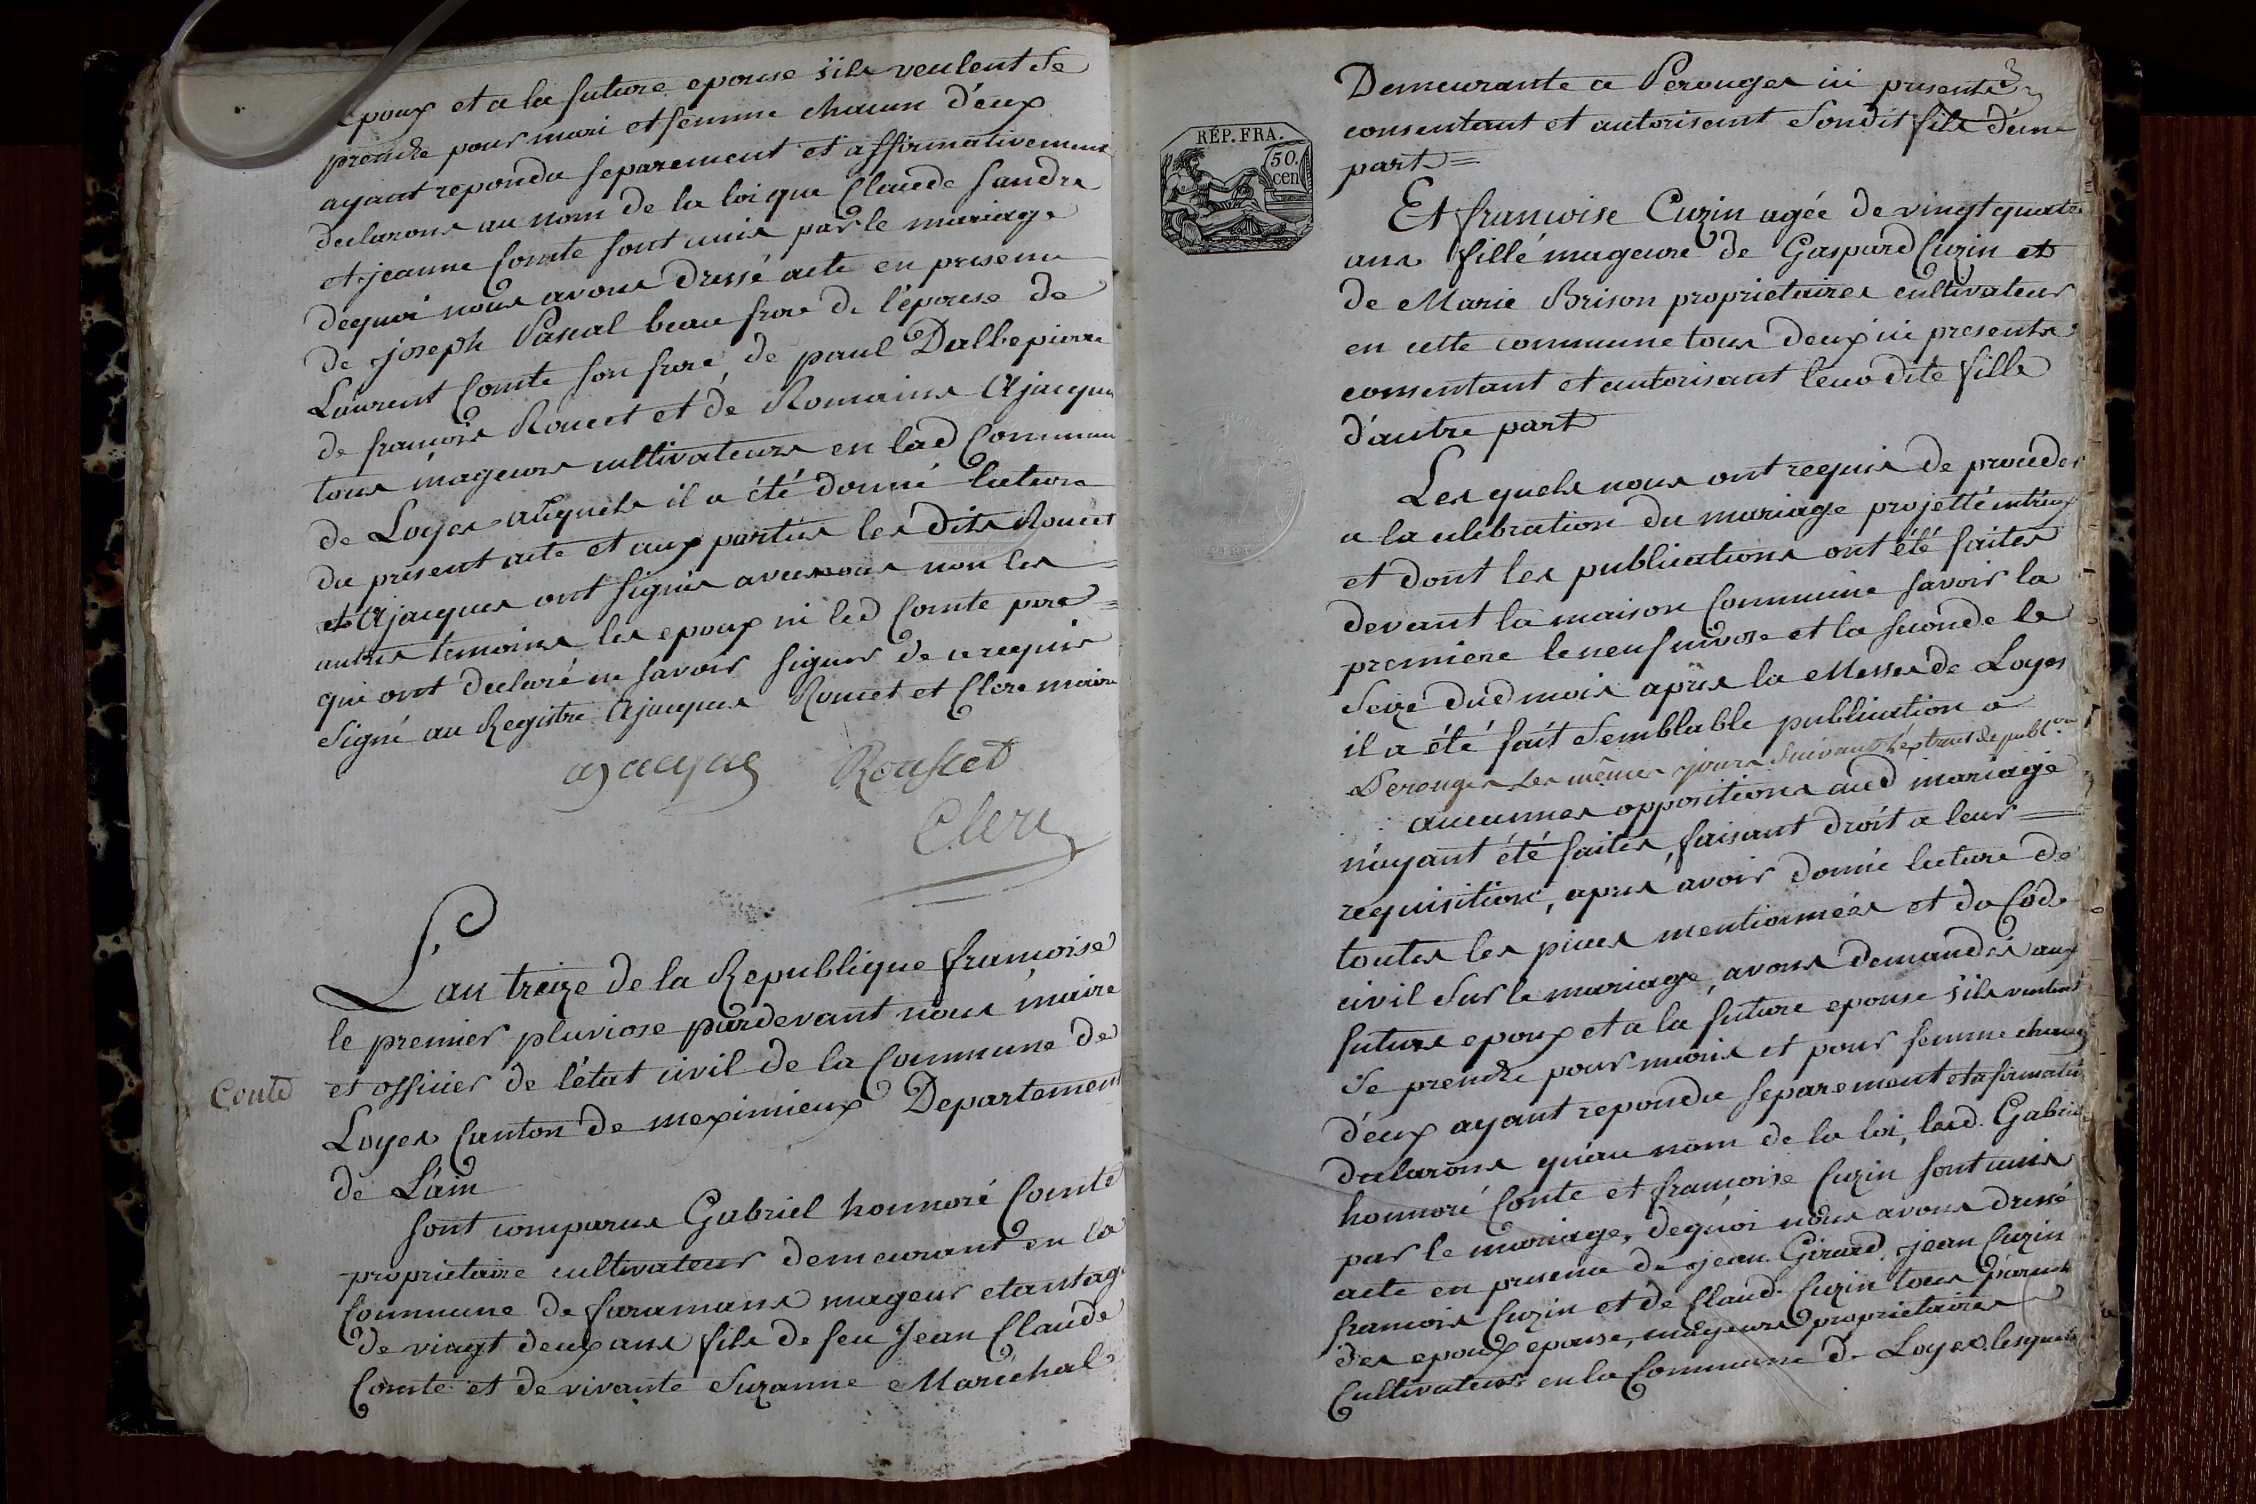 epoux et a la future epouse s'ils veulent se
prendre pour mari et femme chacun d'eux
ayant repondu separement et affirmativement
declarons au nom de la loi que Claude Sandra
et jeanne Comte sont unis par le mariage
dequoi nous avons dressé acte en presence
de joseph Pascal beau frere de l'épouse de
Laurent Comte son frere, de paul Dallepierre
de francois Roucet et de Romains Ajacques
tous mageurs cultivateurs en lad Commune
de Loyes auquels il a été donné lecture
du present acte et aux parties les dits Roucet
et Ajacques ont signés avec nous non les
autres temoins les epoux ni led Comte pere
qui ont declaré ne savoir signer de ce requis
signé au Registre Ajacques Roucet et Clerc maire
ajacque Rouset
Clerc
L'an treize de la Republique francoise
le premier pluviose pardevant nous maire
et officier de l'état civil de la Commune de
Conte
Loyes Canton de meximieux Departement
de L'ain
sont comparus Gabriel honnoré Comte
proprietaire cultivateur demeurant en la
Commune de faramans mageur etant agé
de vingt deux ans fils de feu Jean Claude
Comte et de vivante Suzanne Maréchal
Demeurante a Perouges ici presente
consentant et autorisant Sondit fils d'une
part
REP. FRA.
50.
cen
Et francoise Cuzin agée de vingt quatre
ans fille mageure de Gaspard Cuzin et
de Marie Brison proprietaires cultivateurs
en cette commune tous deux ici presents
consentant et autorisant leur dite fille
d'autre part
Les quels nous ont requis de proceder
a la celebration du mariage projetté entr'eux
et dont les publications ont été faites
devant la maison Commune savoir la
premiere le neuf nivose et la seconde le
Seize dud mois après la Messe de Loyes
il a été fait semblable publication a
Perouges les mêmes jours suivant l'extrait de publ.on
aucunnes oppositions aud mariage
n'ayant été faites, faisant droit a leur
requisition, apres avoir donné lecture de
toutes les pieces mentionnées et du Code
civil sur le mariage, avons demandés aux
futurs epoux et a la future epouse s'ils veulent
se prendre pour maris et pour femme chacun
d'eux ayant repondu separement et afirmativ
declarons qu'au nom de la loi, led. Gabriel
honnoré Conte et francoise Cuzin sont unis
par le mariage, dequoi nous avons dressé
acte en presence de jean Girard, jean Cuzin
francois Cuzin et de Claude Cuzin tous parents
des epoux epouse, mageurs proprietaires
Cultivateurs en la Commune de Loyes lesquels